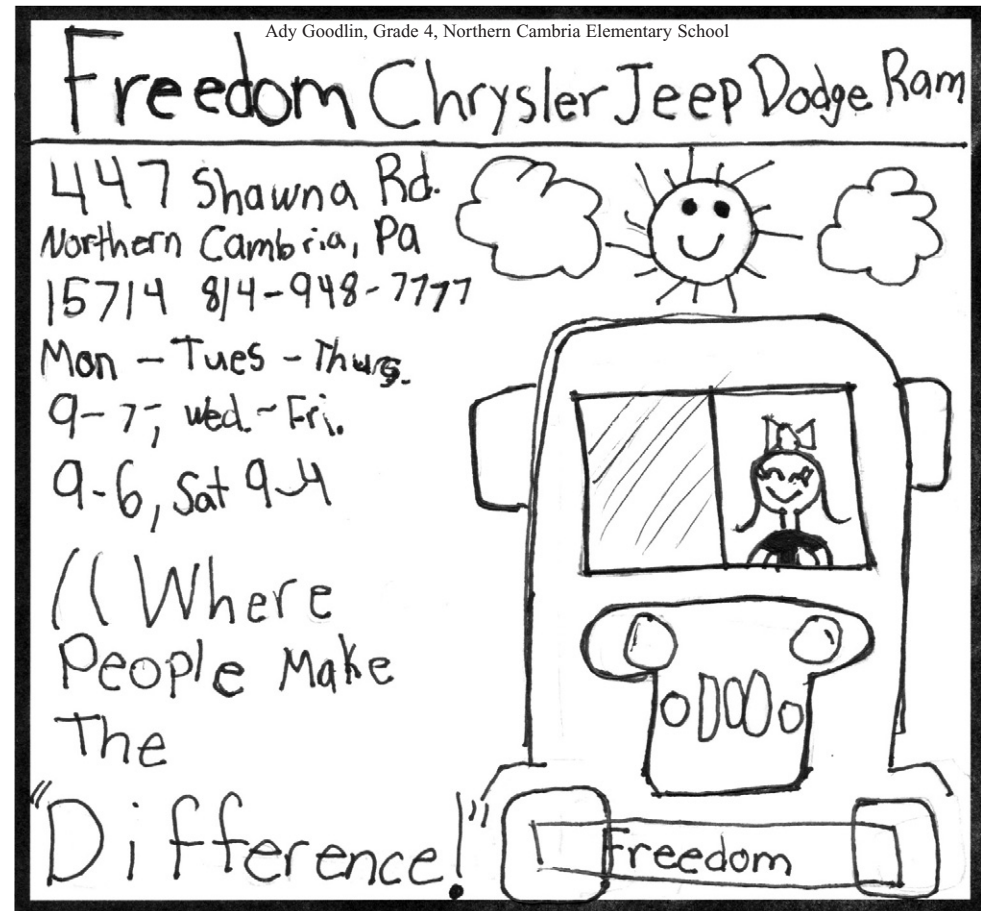 Ady Goodlin, Grade 4, Northern Cambria Elementary School
Freedom Chrysler Jeep Dodge Ram
447 Shawna Rd.
Northern Cambria, Pa
15714 814-948-7777
Mon - Tues - Thurs.
9-7, Wed. - Fri.
9-6, Sat 9-4
"Where
People Make
The
"Difference!"
Freedom